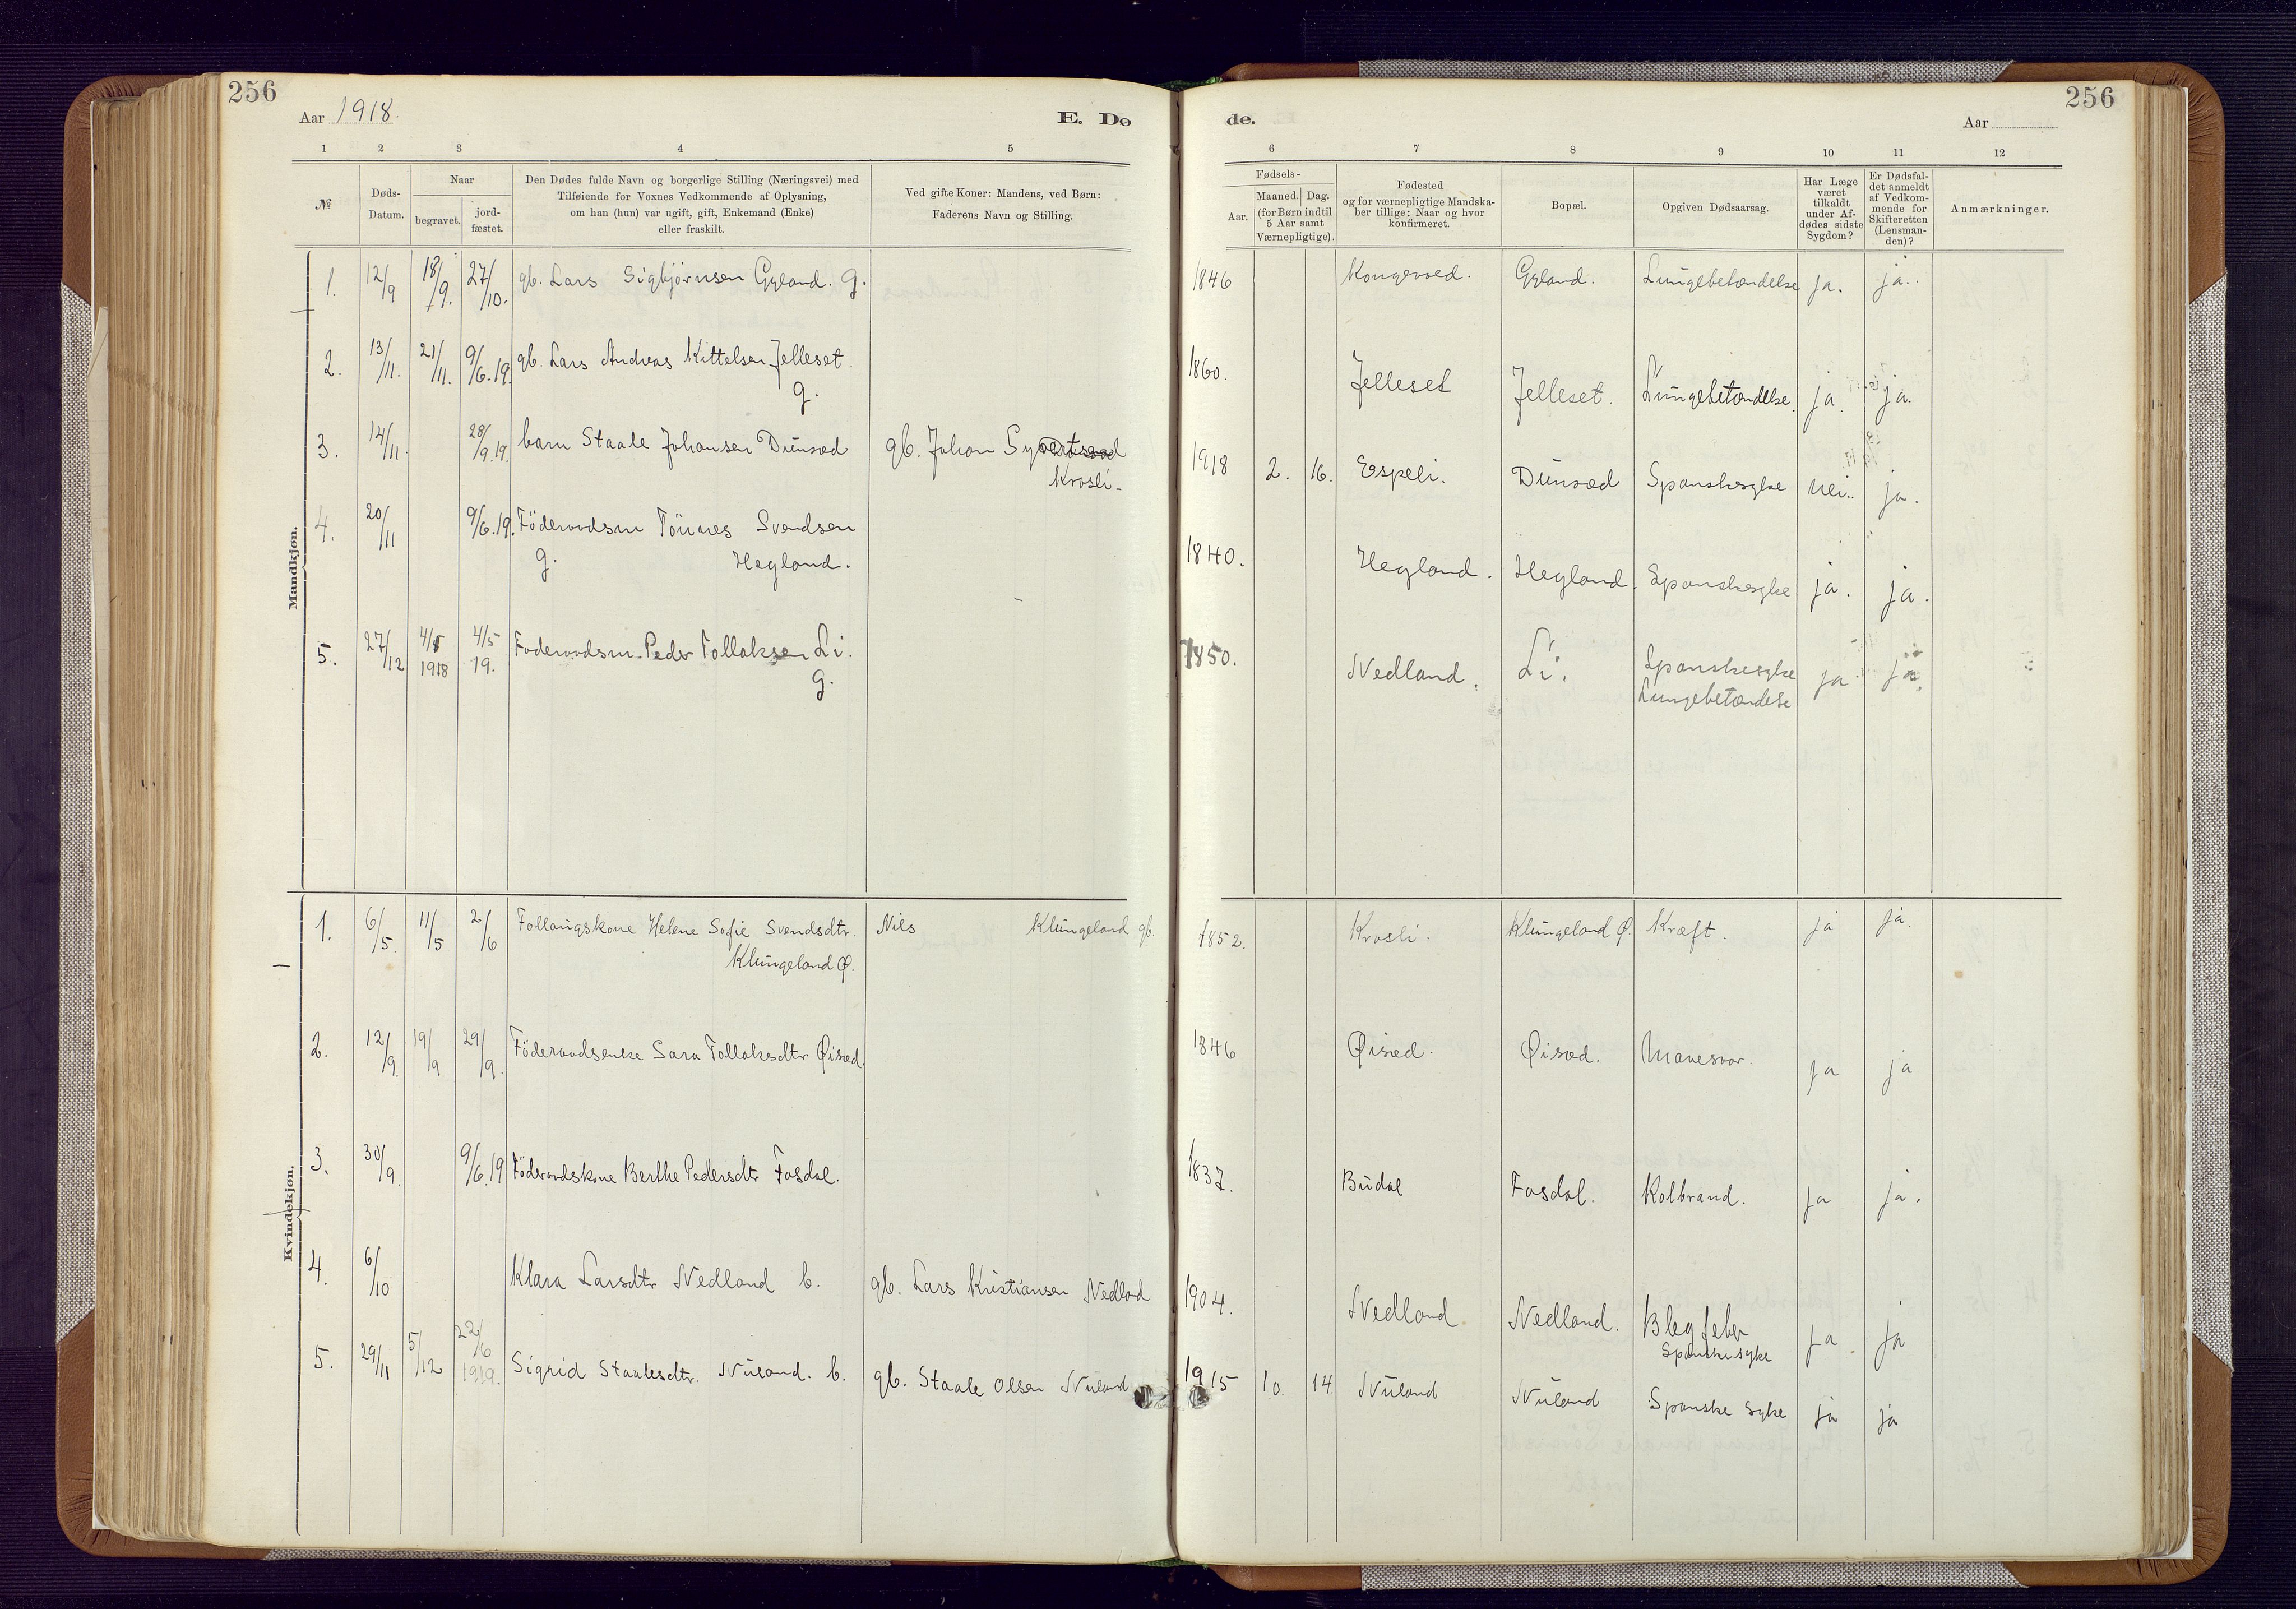 256
Aar 1918.
E. Dø
1 2 3 4 5
№
Døds-
Datum.
Naar
begravet.
jord-
fæstet.
Den Dødes fulde Navn og borgerlige Stilling (Næringsvei) med
Tilføiende for Voxnes Vedkommende af Oplysning,
om han (hun) var ugift, gift, Enkemand (Enke)
eller fraskilt.
Ved gifte Koner: Mandens, ved Børn:
Faderens Navn og Stilling.
Mandkjøn.
1. 12/9 18/9. 27/10. gb. Lars Sigbjørnsen Gyland. g.
2. 13/11. 21/11. 9/6.19. gb. Lars Andreas Kittelsen Jelleset.
g.
3. 14/11. 28/9.19. barn Staale Johansen Dunsæd gb. Johan
Krosli.
4. 20/11 9/6.19. Föderaadsm Tönnes Svendsen
g. Hegland.
5. 27/12 4/1 1918 4/5 19. Foderaadsm. Peder Tollaksen Li.
g.
Kvindekjøn.
1. 6/5. 11/5 2/6 Follaugskone Helene Sofie Svendsdtr. Nils Klungeland gb.
Klungeland Ø.
2. 12/9. 19/9 29/9. Föderaadsenke Sara Tollaksdtr Øisæd.
3. 30/9. 9/6.19 Föderaadskone Berthe Pedersdtr Fosdal.
4. 6/10 Klara Larsdtr Nedland b. gb. Lars Kristiansen Nedland
5. 29/11 5/12 22/6 1919. Sigrid Staalesdtr. Nuland. b. gb. Staale Olsen Nuland
256
de.
Aar
6 7 8 9 10 11 12
Fødsels-
Aar.
Maaned. Dag.
(for Børn indtil
5 Aar samt
Værnepligtige).
Fødested
og for værnepligtige Mandska-
ber tillige: Naar og hvor
konfirmeret.
Bopæl.
Opgiven Dødsaarsag.
Har Læge
været
tilkaldt
under Af-
dødes sidste
Sygdom?
Er Dødsfal-
det anmeldt
af Vedkom-
mende for
Skifteretten
(Lensman-
den)?
Anmærkninger.
1846 Kongevoed. Gyland. Lungebetændelse ja. ja.
1860. Jelleset Jelleset. Lungebetændelse. ja. ja.
1918 2. 16. Espeli. Dunsæd Spanskesyke nei. ja.
1840. Hegland. Hegland. Spanskesyke ja. ja.
1850. Nedland. Li. Spanskesyke ja ja.
Lungebetændelse
1852. Krosli. Klungeland Ø. Kræft. ja ja.
1846 Øisæd. Øisæd. Mavesaar. ja ja
1837. Budal Fosdal. Kolbrand. ja ja.
1904. Nedland Nedland. Blegfeber ja. ja
Spanske syke
1915 10. 14. Nuland Nuland Spanske syke ja ja